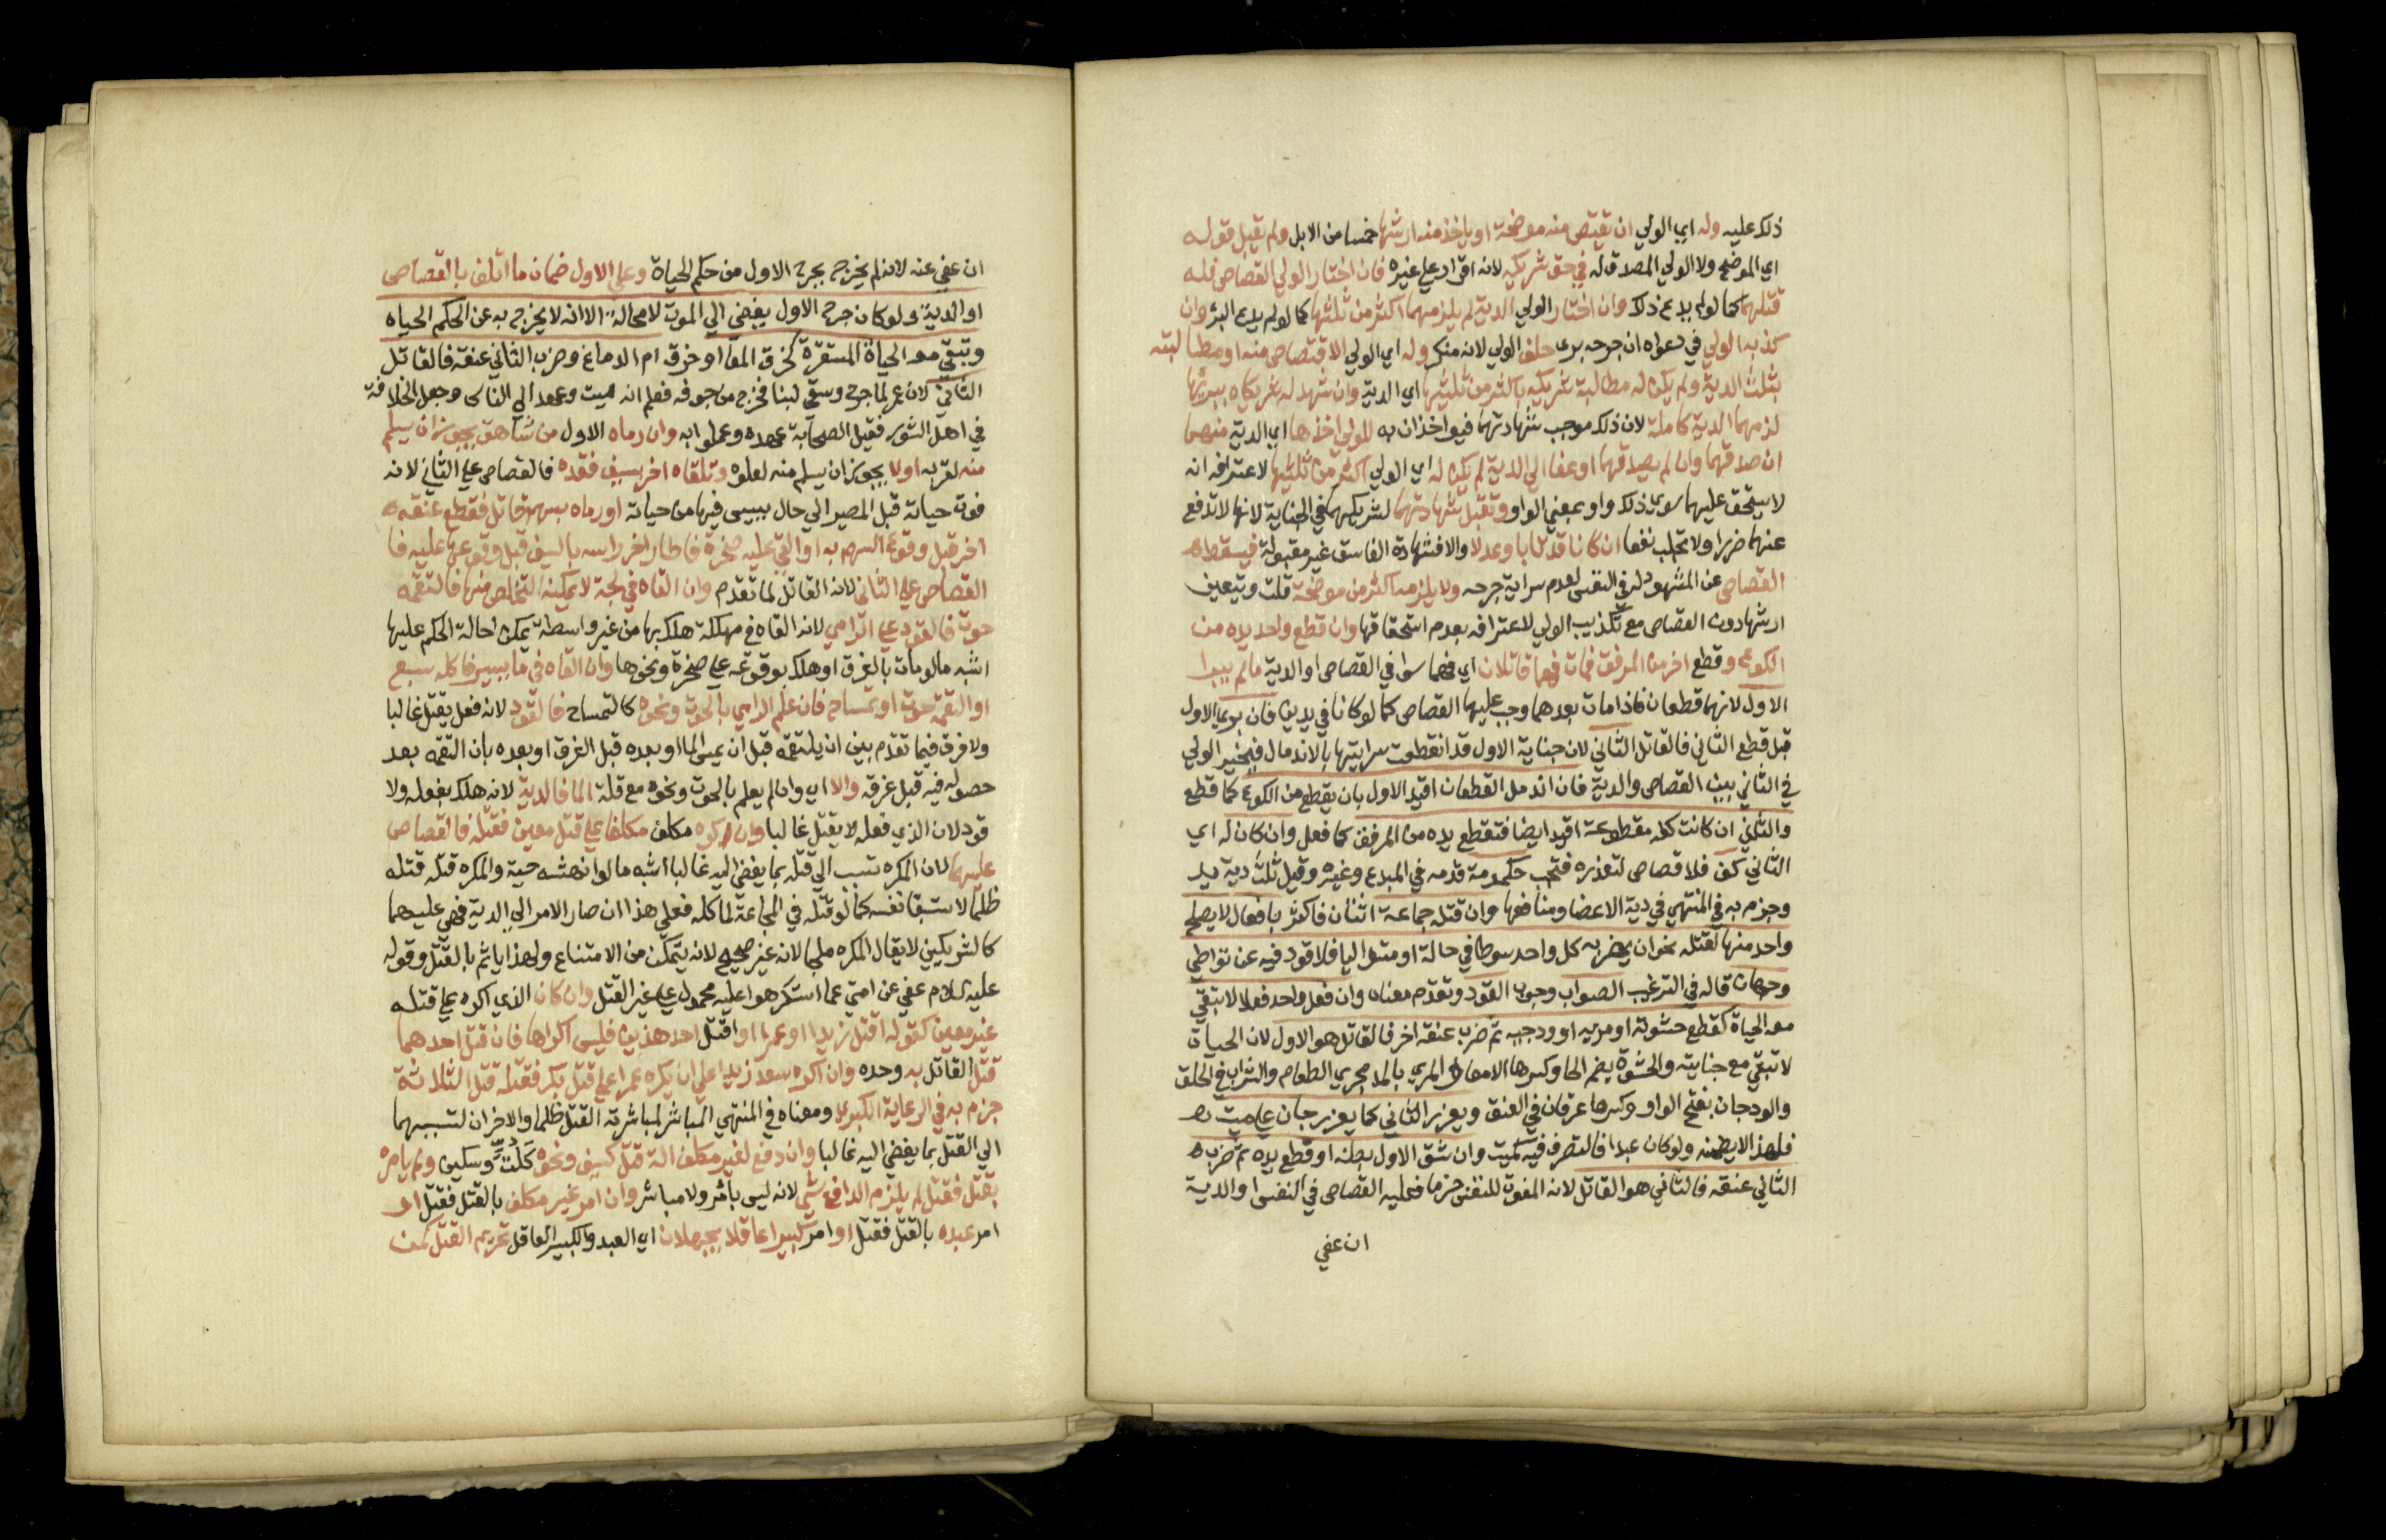 ذلك عليه وله اي الولي ان يقتص منه موضحة او ياخذ منه ارشها خمسا من الابل ولم يقبل قوله
اي الموضح ولا الولي المصدق له في حق شريكيه لانه اقرار علي غيره فان اختار الولي القصاص فله
قتلهما كما لو لم يدع ذلك وان اختار الولي الدية لم يلزمهما اكثر من ثلثيها كما لو لم يدع البرء وان
كذبه الولي في دعواه ان جرحه برئ حلف الولي لانه منكر وله اي الولي الاقتصاص منه او مطالبته
بثلث الدية ولم يكن له مطالبة شريكيه باكثر من ثلثيها اي الدية وان شهد له شريكاه ببرئها
لزمهما الدية كاملة لان ذلك موجب شهادتهما فيواخذان به للولي اخذها اي الدية منهما
ان صدقهما وان لم يصدقهما او عفا الي الدية لم يكن له اي الولي اكثر من ثلثيها لاعترافه انه
لا يستحق عليهما سوي ذلك واو بمعني الواو وتقبل شهادتهما لشريكهما في الجناية لانها لا تدفع
عنهما ضررا ولا تجلب نفعا ان كانا قد تابا وعدلا والا فشهادة الفاسق غير مقبولة فيسقط
القصاص عن المشهود له في النفس لعدم سراية جرحه ولا يلزمه اكثر من موضحة قلت ويتعين
ارشها دون القصاص مع تكذيب الولي لاعترافه بعدم استحقاقها وان قطع واحد يده من
الكوع وقطع اخر من المرفق فمات فهما قاتلان اي فهما سوا في القصاص او الدية ما لم يبرا
الاول لانهما قطعان فاذا مات بعدهما وجب عليهما القصاص كما لو كانا في يدين فان برئ الاول
قبل قطع الثاني فالقاتل الثاني لان جناية الاول قد انقطعت سرايتها بالاندمال فيخير الولي
في الثاني بين القصاص والدية فان اندمل القطعان اقيد الاول بان يقطع من الكوع كما قطع
والثاني ان كانت كفه مقطوعة اقيد ايضا فتقطع يده من المرفق كما فعل وان كان له اي
الثاني كف فلا قصاص لتعذره فتجب حكومة قدمه في المبدع وغيره وقيل ثلث دية يد
وجزم به في المنتهي في دية الاعضا ومنافعها وان قتله جماعة اثنان فاكثر بافعال لا يصلح
واحد منها لقتله نحو ان يضربه كل واحد سوطا في حالة او متواليا فلا قود فيه عن تواطي
وجهان قاله في الترغيب الصواب وجوب القود وتقدم معناه وان فعل واحد فعلا لا تبقي
معه الحياة كقطع حشوته او مريه او ودجيه ثم ضرب عنقه اخر فالقاتل هو الاول لان الحياة
لا تبقي مع جنايته والحشوة بضم الحا وكسرها الامعا والمري بالمد مجري الطعام والشراب في الحلق
والودجان بفتح الواو وكسرها عرقان في العنق ويعزر الثاني كما يعزر جان علي ميت
فلهذا لا يضمنه ولو كان عبدا فالتصرف فيه كميت وان شق الاول بطنه او قطع يده ثم ضرب
الثاني عنقه فالثاني هو القاتل لانه المفوت للنفس جزما فعليه القصاص في النفس او الدية
ان عفي
ان عفي عنه لانه لم يخرج بجرح الاول من حكم الحياة وعلي الاول ضمان ما اتلف بالقصاص
او الدية ولو كان جرح الاول يفضي الي الموت لا محالة الا انه لا يخرج به عن الحكم الحياه
وتبقي معه الحياة المستقرة كخرق المعا او خرق ام الدماغ وضرب الثاني عنقه فالقاتل
الثاني لان عمر لما جرح وسقي لبنا فخرج من جوفه فعلم انه ميت وعهد الي الناس وجعل الخلافة
في اهل الشوري فقبل الصحابة عهده وعملوا به وان رماه الاول من شاهق يجوز ان يسلم
منه لقربه او لا يجوز ان يسلم منه لعلوه وتلقاه اخر بسيف فقده فالقصاص علي الثاني لانه
فوت حياته قبل المصير الي حال ييبس فيها من حياته او رماه بسهم قاتل فقطع عنقه
اخر قبل وقوع السهم به او القي عليه صخرة فاطار اخر راسه بالسيف قبل وقوعها عليه فا
القصاص علي الثاني لانه القاتل لما تقدم وان القاه في لجة لا يمكنه التخلص منها فالتقمه
حوت فالقود علي الرامي لانه القاه في مهلكة هلك بها من غير واسطة يمكن احالة الحكم عليها
اشبه ما لو مات بالغرق او هلك بوقوعه علي صخرة ونحوها وان القاه في ما يسير فاكله سبع
او التقمه حوت او تمساح فان علم الرامي بالحوت ونحوه كالتمساح فالقود لانه فعل يقتل غالبا
ولا فرق فيما تقدم بين ان يلتقمه قبل ان يمس الما او بعده قبل الغرق او بعده بان التقمه بعد
حصوله فيه قبل غرقه والا اي وان لم يعلم بالحوت ونحوه مع قلة الما فالدية لانه هلك بفعله ولا
قود لان الذي فعله لا يقتل غالبا وان اكره مكلف مكلفا علي قتل معين فقتله فالقصاص
عليهما لان المكره تسبب الي قتله بما يفضي اليه غالبا اشبه ما لو انهشه حية والمكره قتله قتله
ظلما لاستبقا نفسه كما لو قتله في المجاعة لياكله فعلي هذا ان صار الامر الي الدية فهي عليهما
كالشريكين لا يقال المكره ملجا لانه غير صحيح لانه يتمكن من الامتناع ولهذا ياثم بالقتل وقوله
عليه السلام عفي عن امتي عما استكرهوا عليه محمول علي غير القتل وان كان الذي اكره علي قتله
غير معين كقوله اقتل زيدا او عمرا او اقتل احد هذين فليس اكراها فان قتل احدهما
قتل القاتل به وحده وان اكره سعد زيدا علي ان يكره عمرا علي قتل بكر فقتله قتل الثلاثة
جزم به في الرعاية الكبري ومعناه في المنتهي المباشر لمباشرته القتل ظلما والاخران لتسببهما
الي القتل بما يفضي اليه غالبا وان دفع لغير مكلف الة قتل كسيف ونحوه كَلُتٍّ وسكين ولم يامره
بقتل فقتل لم يلزم الدافع شي لانه ليس بامر ولا مباشر وان امر غير مكلف بالقتل فقتل او
امر عبده بالقتل فقتل او امر كبيرا عاقلا يجهلان اي العبد والكبير العاقل تحريم القتل كمن